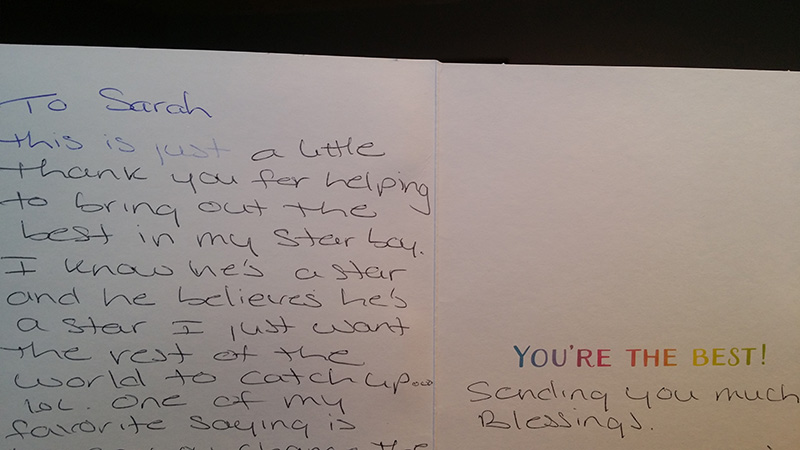 To Sarah
this is just a little
thank you for helping
to bring out the
best in my star boy.
I know he's a star
and he believes he's
a star I just want
the rest of the
world to catch up...
lol. One of my
favorite saying is
the
YOU'RE THE BEST!
Sending you much
Blessings.